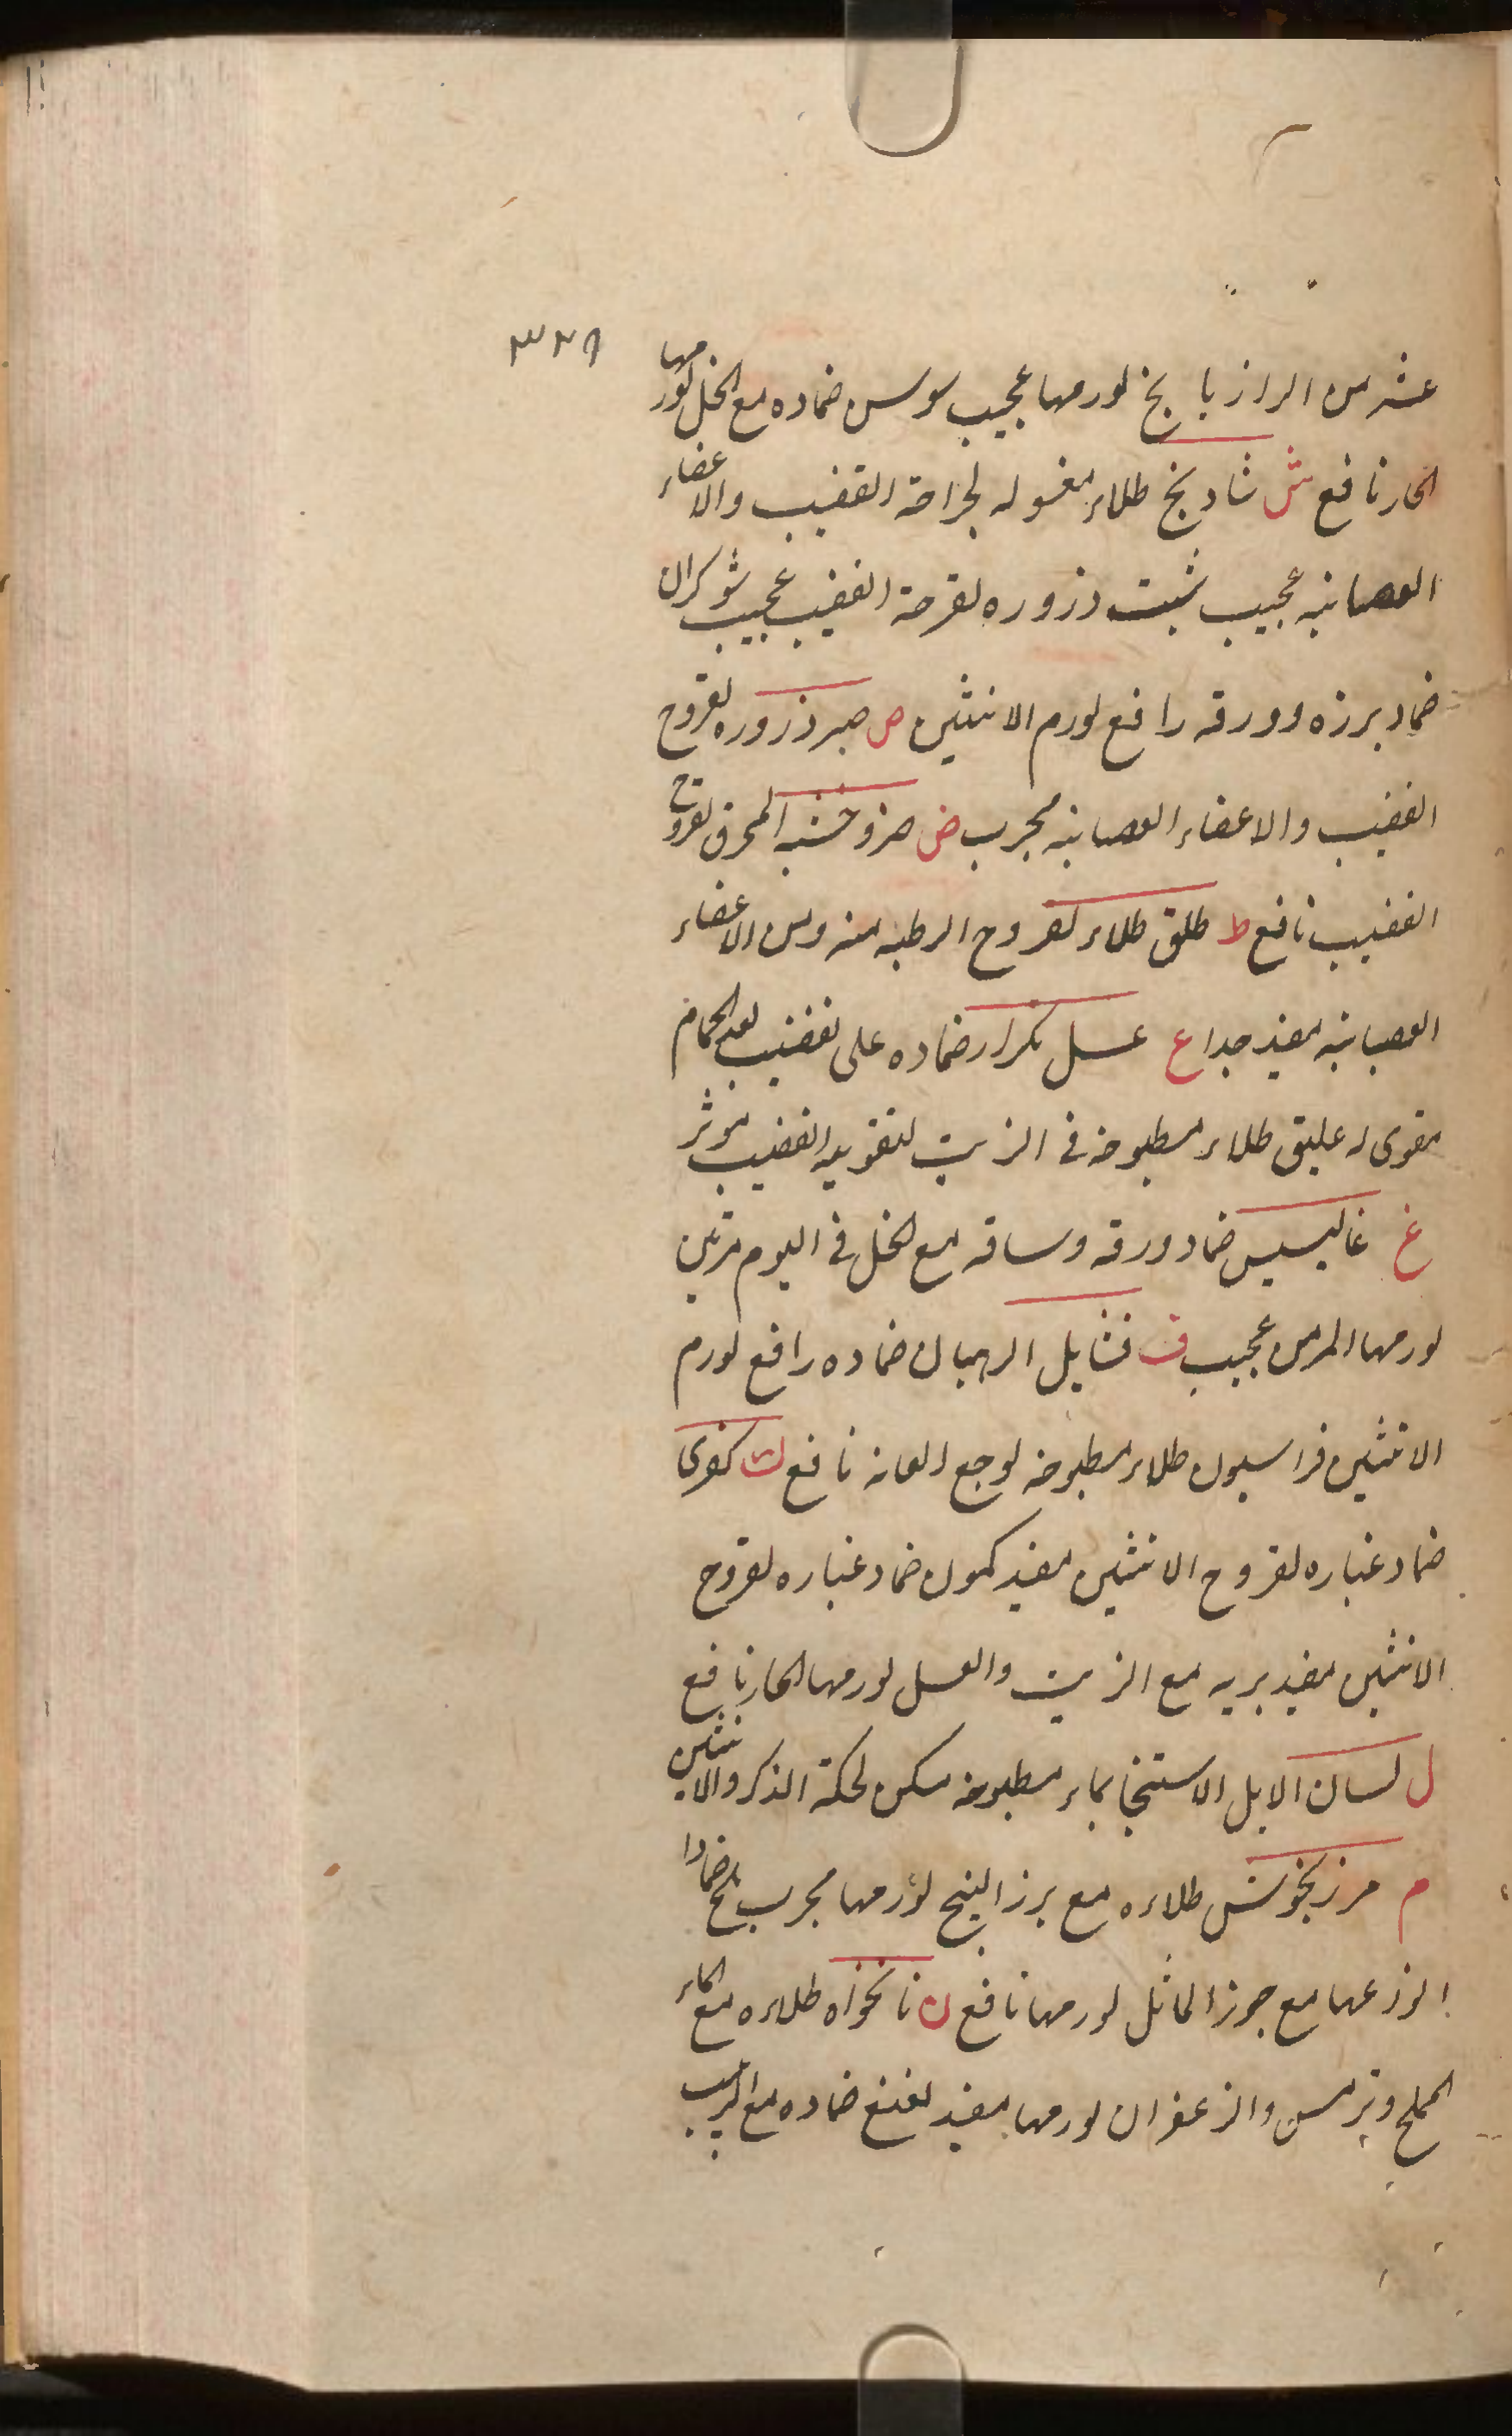 ٣٢٩
عشر من الرازيانج لورمها عجيب سوسن ضماده مع الخل لورمها
الحار نافع ش شادنج طلاء مغسوله لجراحة القضيب والاعضاء
العصبانيه عجيب شبت ذروره لقرحة القضيب عجيب شوكران
ضماد بزره وورقه رافع لورم الانثيين ص صبر ذروره لقروح
القضيب والاعضاء العصبانيه مجرب ض ضرو خشبه المحرق لقروح
القضيب نافع ط طلق طلاء لقروح الرطبه منه ومن الاعضاء
العصبانيه مفيد جدا ع عسل تكرار ضماده على القضيب بعد الحمام
مقوى له عليق طلاء مطبوخه فى الزيت لتقويه القضيب موثر
غ غاليبسس ضماد ورقه وساقه مع الخل فى اليوم مرتين
لورمها المزمن عجيب ف فتايل الرهبان ضماده رافع لورم
الانثيين فراسيون طلاء مطبوخه لوجع العانه نافع ك كفرى
ضماد غباره لقروح الانثيين مفيد كمون ضماد غباره لقروح
الانثيين مفيد بريه مع الزيت والعسل لورمها الحار نافع
ل لسان الابل الاستنجا بماء مطبوخه مسكن لحكة الذكر والانثيين
م مرزنجوش طلاءه مع بزر البنج لورمها مجرب ضمادا
مع جوز الماثل لورمها نافع ن نانخواه طلاءه مع الماء
الملح وترمس والزعفران لورمها مفيد نعنع ضماده مع